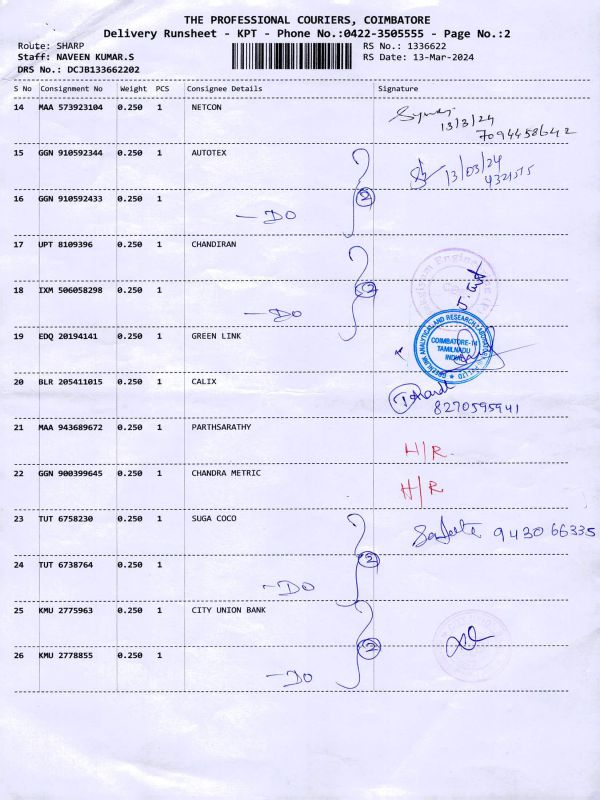 THE PROFESSIONAL COURIERS, COIMBATORE
Delivery Runsheet - KPT - Phone No.:0422-3505555 - Page No.:2
Route: SHARP
RS No.: 1336622
Staff: NAVEEN KUMAR.S
RS Date: 13-Mar-2024
DRS No.: DCJB133662202
S No Consignment No Weight PCS Consignee Details Signature
14 MAA 573923104 0.250 1 NETCON
13/3/24
7094458642
15 GGN 910592344 0.250 1 AUTOTEX
13/03/24
16 GGN 910592433 0.250 1
2
- DO
17 UPT 8109396 0.250 1 CHANDIRAN
18 IXM 506058298 0.250 1
2
- DO
19 EDQ 20194141 0.250 1 GREEN LINK
GREENLINK ANALYTICAL AND RESEARCH LABORATORY
COIMBATORE-14
TAMILNADU
INDIA
20 BLR 205411015 0.250 1 CALIX
8270595941
21 MAA 943689672 0.250 1 PARTHSARATHY
H/R.
22 GGN 900399645 0.250 1 CHANDRA METRIC
H/R
23 TUT 6758230 0.250 1 SUGA COCO
943066335
24 TUT 6738764 0.250 1
2
- DO
25 KMU 2775963 0.250 1 CITY UNION BANK
26 KMU 2778855 0.250 1
2
- DO